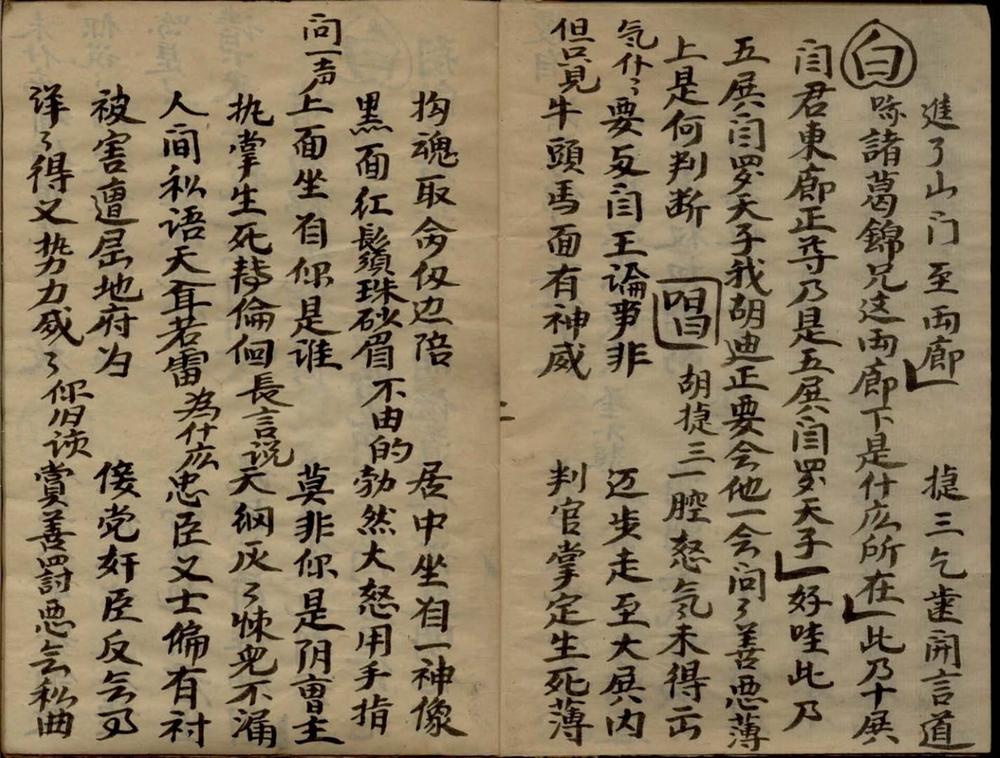 進了山门至両廊 捷三乞歯開言道
白 哧諸葛錦兄这両廊下是什庅所在 此乃十展
闫君東廊正等乃是五展闫罗天子 好哇此乃
五展闫罗天子我胡迪正要会他一会问了善悪薄
上是何判断 唱白 胡捷三一腔怒氣未得云
氣仆々要与闫王論亊非 迈步走至大展内
但只見牛頭馬面有神威 判官掌定生死薄
抅魂取命伩边陪 居中坐自一神像
黒面红鬚珠砂眉 不由的勃然大怒用手指
问一声上面坐自你是谁 莫非你是阴曺主
执掌生死替倫佪 長言说天綱灰了悚児不漏
人间私語天耳若雷 為什庅忠臣义士偏有衬
被害遭屈地府为 倿党奸臣反云
洋了得义势力威了 你旧读賞善罸悪厺私曲